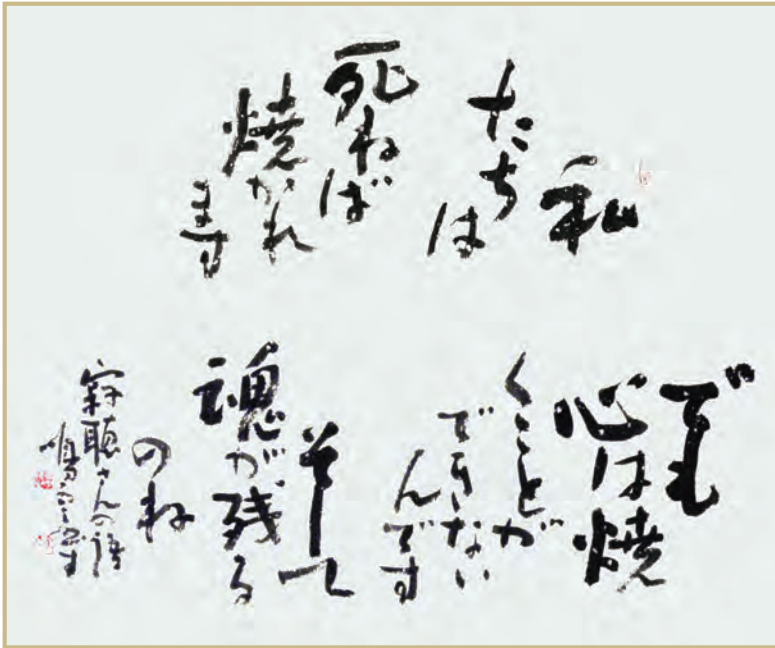 私
たちは
死ねば
焼かれ
ます
でも
心は焼
くことが
できない
んです
そして
魂が残る
のね
寂聴さんの語